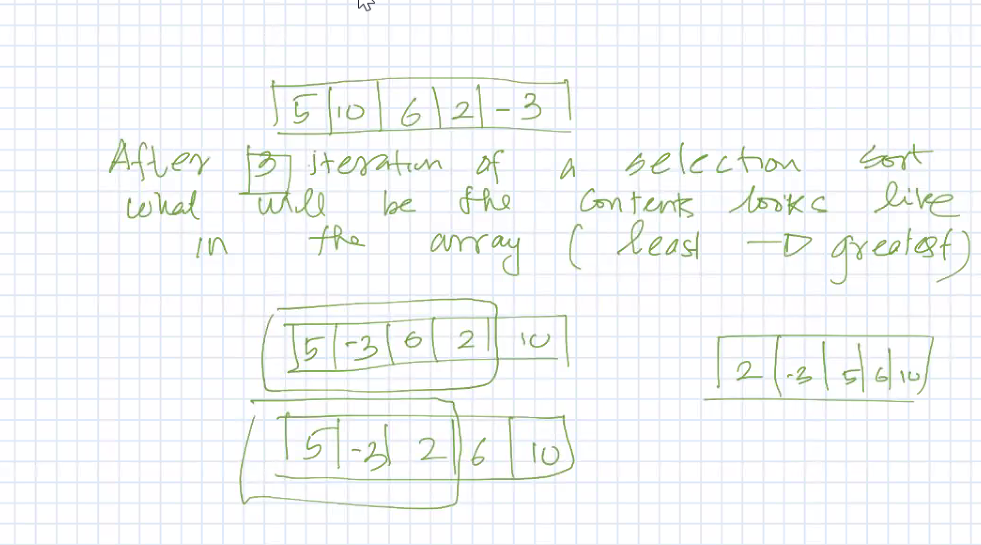 5 10 6 2 -3
After 3 iteration of a selection sort
what will be the contents looks like
in the array (least → greatest)
5 -3 6 2 10
2 -3 5 6 10
5 -3 2 6 10